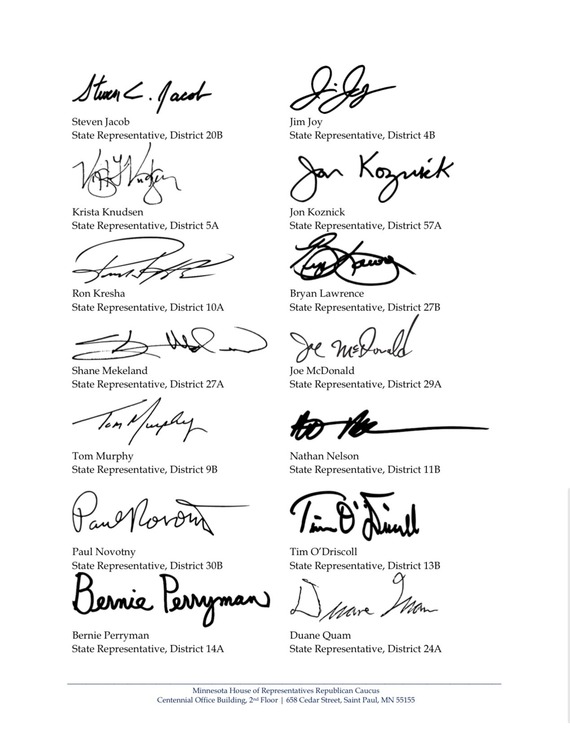 Steven C. Jacob
Steven Jacob
State Representative, District 20B
Jim Joy
State Representative, District 4B
Krista Knudsen
State Representative, District 5A
Jon Koznick
Jon Koznick
State Representative, District 57A
Ron Kresha
State Representative, District 10A
Bryan Lawrence
State Representative, District 27B
Shane Mekeland
State Representative, District 27A
Joe McDonald
Joe McDonald
State Representative, District 29A
Tom Murphy
Tom Murphy
State Representative, District 9B
Nathan Nelson
State Representative, District 11B
Paul Novotny
State Representative, District 30B
Tim O'Driscoll
State Representative, District 13B
Bernie Perryman
Bernie Perryman
State Representative, District 14A
Duane Quam
State Representative, District 24A
Minnesota House of Representatives Republican Caucus
Centennial Office Building, 2nd Floor | 658 Cedar Street, Saint Paul, MN 55155